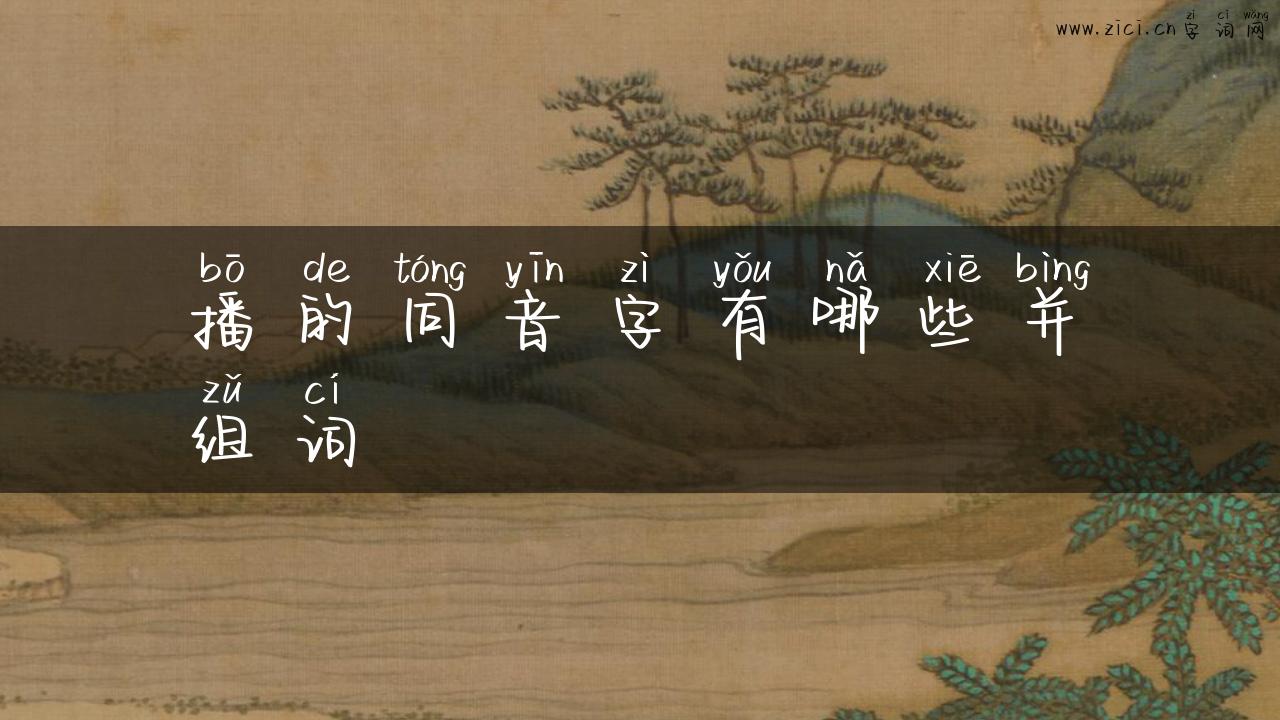 zì cí wǎng
www.zici.cn 字词网
bō de tóng yīn zì yǒu nǎ xiē bìng
播的同音字有哪些并
zǔ cí
组词